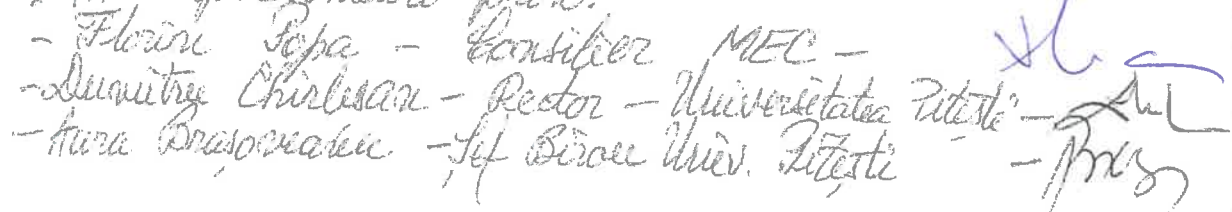 - Florin Popa - Consilier MEC -
- Dumitru Chirlesan - Rector - Universitatea Pitești -
- Aura Brașoveanu - Șef Birou Univ. Pitești -